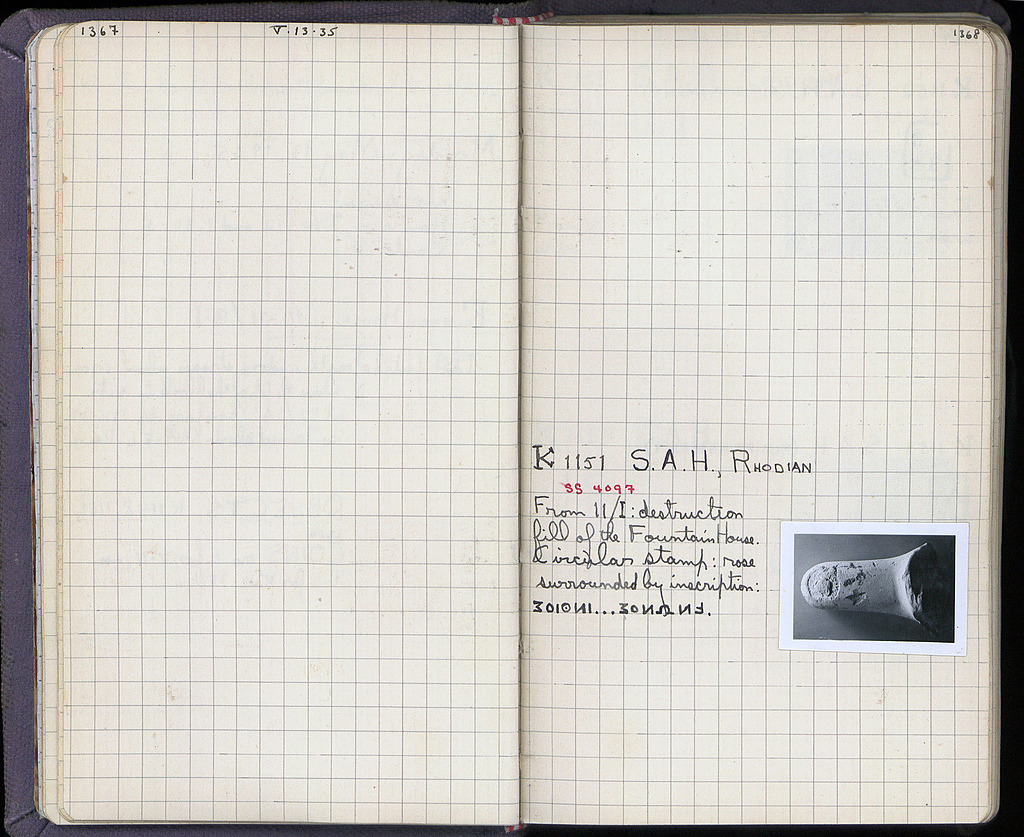 1367
V·13·35
1368
K 1151 S.A.H., RHODIAN
SS 4097
From 11/I: destruction
fill of the Fountain House.
Circular stamp: rose
surrounded by inscription: